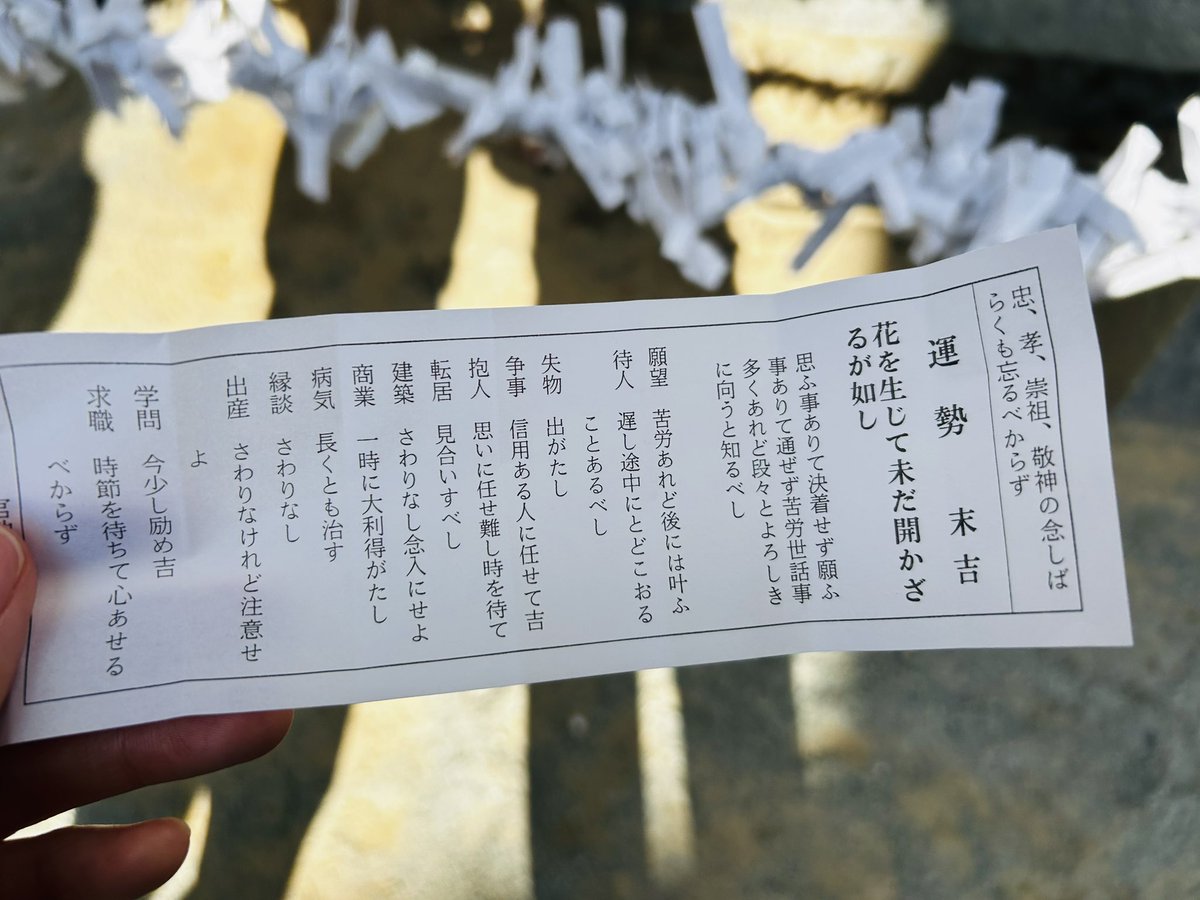 忠、孝、崇祖、敬神の念しば
らくも忘るべからず
運勢 末吉
花を生じて未だ開かざ
るが如し
思ふ事ありて決着せず願ふ
事ありて通ぜず苦労世話事
多くあれど段々とよろしき
に向うと知るべし
願望 苦労あれど後には叶ふ
待人 遅し途中にとどこおる
ことあるべし
失物 出がたし
争事 信用ある人に任せて吉
抱人 思いに任せ難し時を待て
転居 見合いすべし
建築 さわりなし念入にせよ
商業 一時に大利得がたし
病気 長くとも治す
縁談 さわりなし
出産 さわりなけれど注意せ
よ
学問 今少し励め吉
求職 時節を待ちて心あせる
べからず